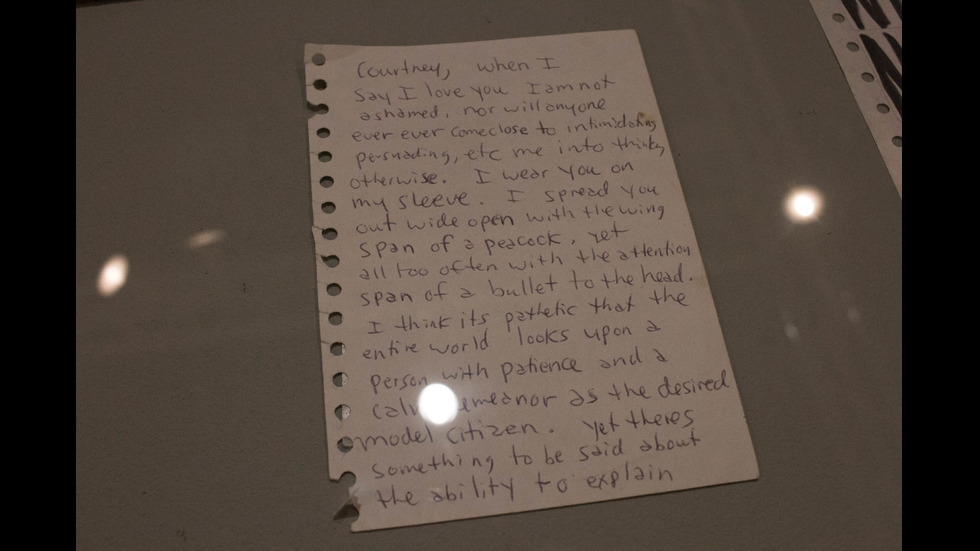 Courtney, when I
say I love you I am not
ashamed, nor will anyone
ever ever come close to intimidating
persuading, etc me into thinking
otherwise. I wear you on
my sleeve. I spread you
out wide open with the wing
span of a peacock, yet
all too often with the attention
span of a bullet to the head.
I think its pathetic that the
entire world looks upon a
person with patience and a
demeanor as the desired
model citizen. Yet theres
something to be said about
the ability to explain